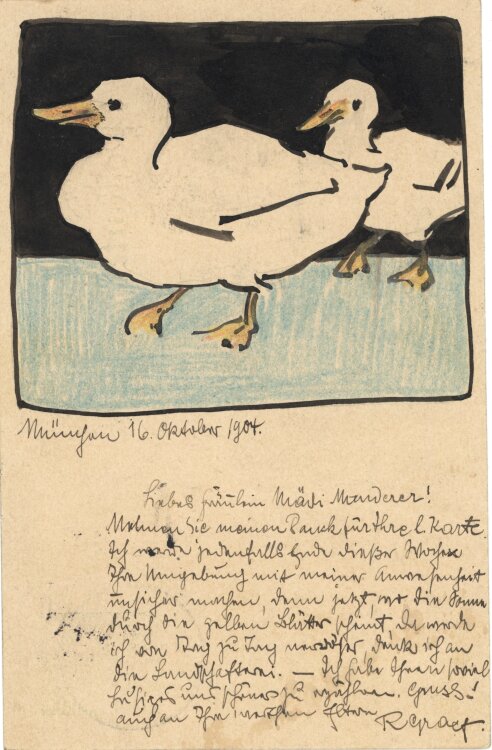 München 16. Oktober 1904.
Liebes Fräulein Mädi Menderer!
Nehmen Sie meinen Dank für Ihre l. Karte.
Ich werde jedenfalls Ende dießer Woche
Ihre Umgebung mit meiner Anwesenheit
unsicher machen, denn jetzt, wo die Sonne
durch die gelben Blätter scheint, da werde
ich von Tag zu Tag nervöser, denk ich an
die Landschafterei. — Ich habe Ihnen soviel
lustiges und schönes zu erzählen. Gruss!
auch an Ihre werthen Eltern
R Graef.